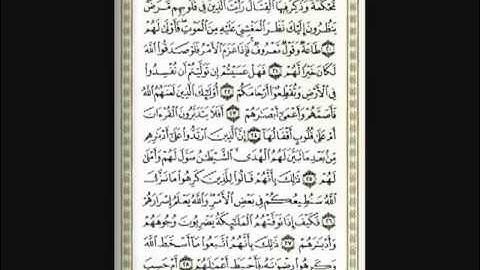 مُّحْكَمَةٌ وَذُكِرَ فِيهَا ٱلْقِتَالُ رَأَيْتَ ٱلَّذِينَ فِى قُلُوبِهِم مَّرَضٌ
يَنظُرُونَ إِلَيْكَ نَظَرَ ٱلْمَغْشِىِّ عَلَيْهِ مِنَ ٱلْمَوْتِ فَأَوْلَىٰ لَهُمْ
﴿٢٠﴾ طَاعَةٌ وَقَوْلٌ مَّعْرُوفٌ فَإِذَا عَزَمَ ٱلْأَمْرُ فَلَوْ صَدَقُوا۟ ٱللَّهَ
لَكَانَ خَيْرًا لَّهُمْ ﴿٢١﴾ فَهَلْ عَسَيْتُمْ إِن تَوَلَّيْتُمْ أَن تُفْسِدُوا۟
فِى ٱلْأَرْضِ وَتُقَطِّعُوٓا۟ أَرْحَامَكُمْ ﴿٢٢﴾ أُو۟لَٰٓئِكَ ٱلَّذِينَ لَعَنَهُمُ ٱللَّهُ
فَأَصَمَّهُمْ وَأَعْمَىٰٓ أَبْصَٰرَهُمْ ﴿٢٣﴾ أَفَلَا يَتَدَبَّرُونَ ٱلْقُرْءَانَ
أَمْ عَلَىٰ قُلُوبٍ أَقْفَالُهَآ ﴿٢٤﴾ إِنَّ ٱلَّذِينَ ٱرْتَدُّوا۟ عَلَىٰٓ أَدْبَٰرِهِم
مِّنۢ بَعْدِ مَا تَبَيَّنَ لَهُمُ ٱلْهُدَى ٱلشَّيْطَٰنُ سَوَّلَ لَهُمْ وَأَمْلَىٰ
لَهُمْ ﴿٢٥﴾ ذَٰلِكَ بِأَنَّهُمْ قَالُوا۟ لِلَّذِينَ كَرِهُوا۟ مَا نَزَّلَ
ٱللَّهُ سَنُطِيعُكُمْ فِى بَعْضِ ٱلْأَمْرِ وَٱللَّهُ يَعْلَمُ إِسْرَارَهُمْ
﴿٢٦﴾ فَكَيْفَ إِذَا تَوَفَّتْهُمُ ٱلْمَلَٰٓئِكَةُ يَضْرِبُونَ وُجُوهَهُمْ
وَأَدْبَٰرَهُمْ ﴿٢٧﴾ ذَٰلِكَ بِأَنَّهُمُ ٱتَّبَعُوا۟ مَآ أَسْخَطَ ٱللَّهَ
وَكَرِهُوا۟ رِضْوَٰنَهُۥ فَأَحْبَطَ أَعْمَٰلَهُمْ ﴿٢٨﴾ أَمْ حَسِبَ